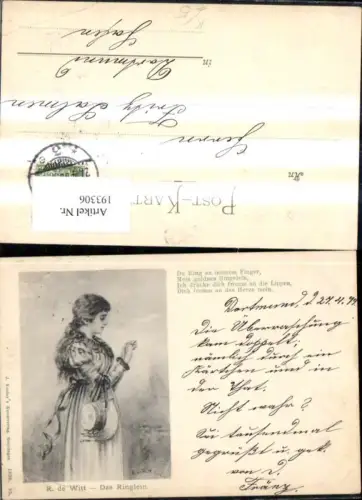 An
POST-KARTE
Herrn
Fritz Salmen
in Dortmund
Hafen
Artikel Nr.
193306
Du Ring an meinem Finger,
Mein goldnes Ringelein,
Ich drücke dich fromm an die Lippen,
Dich fromm an das Herze mein.
Dortmund, d. 27.4.
Die Überraschung
kam doppelt,
nämlich durch ein
Kärtchen und in
der That.
Nicht wahr?
Sei tausendmal
gegrüßt u. gek.
von d.
Fränz.
R. de Witt — Das Ringlein.